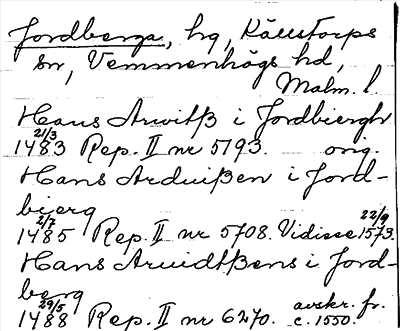 Jordberga, hg, Källstorps
sn, Vemmenhögs hd,
Malm. l.
Hans Arwitß i Jordbiergh
21/3
1483 Rep. II nr 5193. orig.
Hans Arduißen i Jord-
bierg
2/7 22/9
1485 Rep. II nr 5708. Vidisse 1573.
Hans Arwidtßens i Jord-
berg
29/5 avskr. fr.
1488 Rep. II nr 6270. c. 1550.